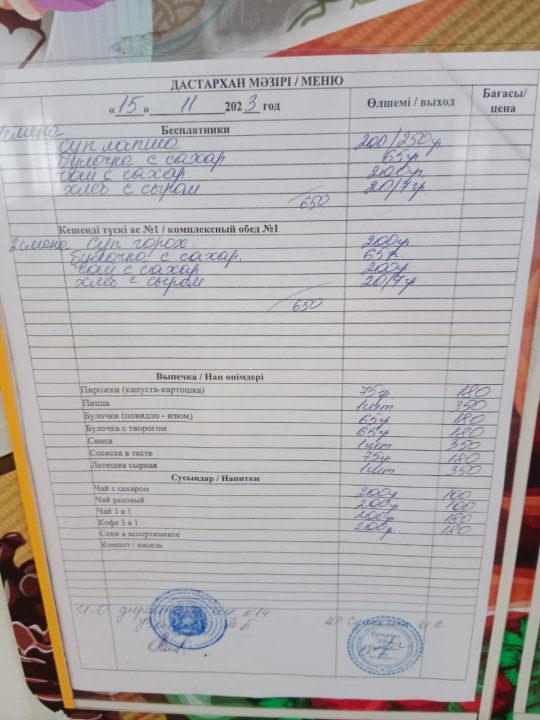 ДАСТАРХАН МӘЗІРІ / МЕНЮ Өлшемі / выход Бағасы/ цена
«15» 11 2023 год
1 смена Бесплатники
суп лапша 200/250гр
булочка с сахар 65гр
чай с сахар 200гр
хлеб с сыром 20/7гр
650
Кешенді түскі ас №1 / комплексный обед №1
2 смена Суп горох. 200гр
булочка с сахар. 65г.
чай с сахар 200гр
хлеб с сыром 20/7гр
650
Выпечка / Нан өнімдері
Пирожки (капуста-картошка) 75гр 180
Пицца 1шт 350
Булочки (повидло - изюм) 65гр 180
Булочка с творогом 65гр 180
Самса 1шт 350
Сосиска в тесте 75гр 180
Лепешка сырная 1шт 350
Сусындар / Напитки
Чай с сахаром 200гр 100
Чай разовый 200гр 100
Чай 3 в 1 200гр 180
Кофе 3 в 1 200гр 180
Соки в ассортименте
Компот / кисель
И.О. №14